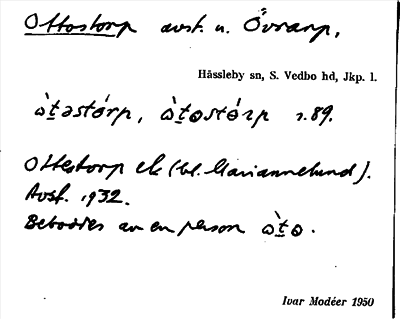 Ottostorp avst. u. Övrarp,
Hässleby sn, S. Vedbo hd, Jkp. l.
ὼt̠əstórp, ὼt̠ostórp s. 89.
Ottestorp ek (bl. Mariannelund).
Avst. 1932.
Beboddes av en person ὼt̠o.
Ivar Modéer 1950